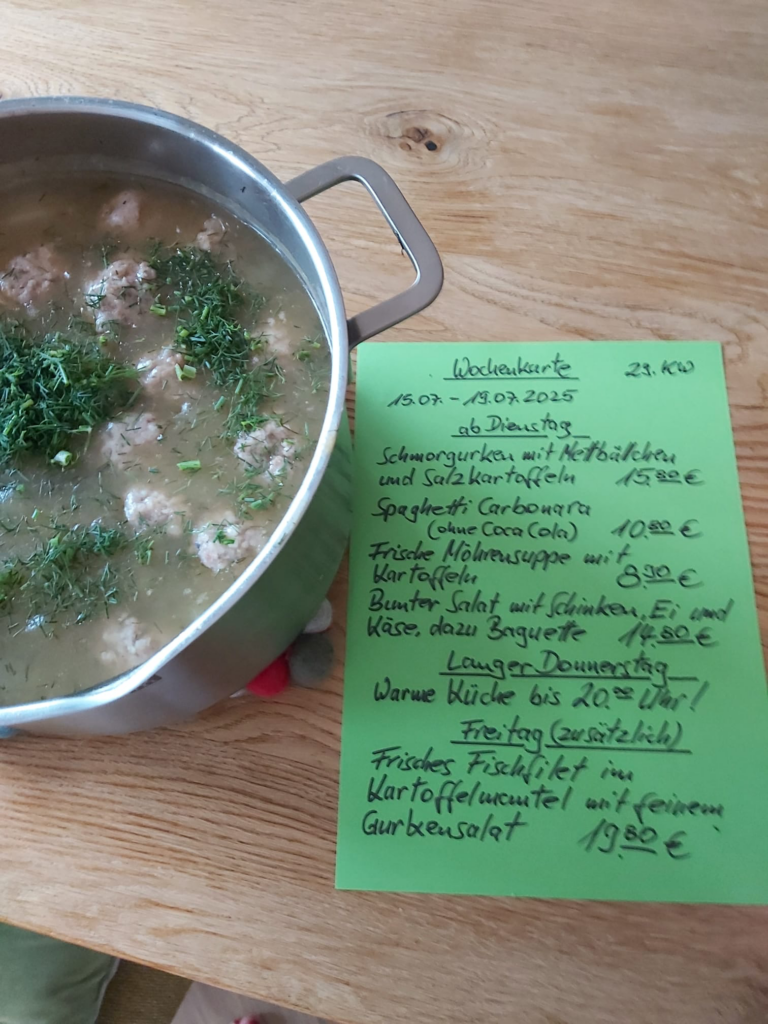 Wochenkarte 29. KW
15.07. - 19.07.2025
ab Dienstag
Schmorgurken mit Mettbällchen
und Salzkartoffeln 15.80 €
Spaghetti Carbonara
(ohne Coca Cola) 10.80 €
Frische Möhrensuppe mit
Kartoffeln 8.90 €
Bunter Salat mit Schinken, Ei und
Käse, dazu Baguette 14.80 €
Langer Donnerstag
Warme Küche bis 20.00 Uhr!
Freitag (zusätzlich)
Frisches Fischfilet im
Kartoffelmantel mit feinem
Gurkensalat 19.80 €